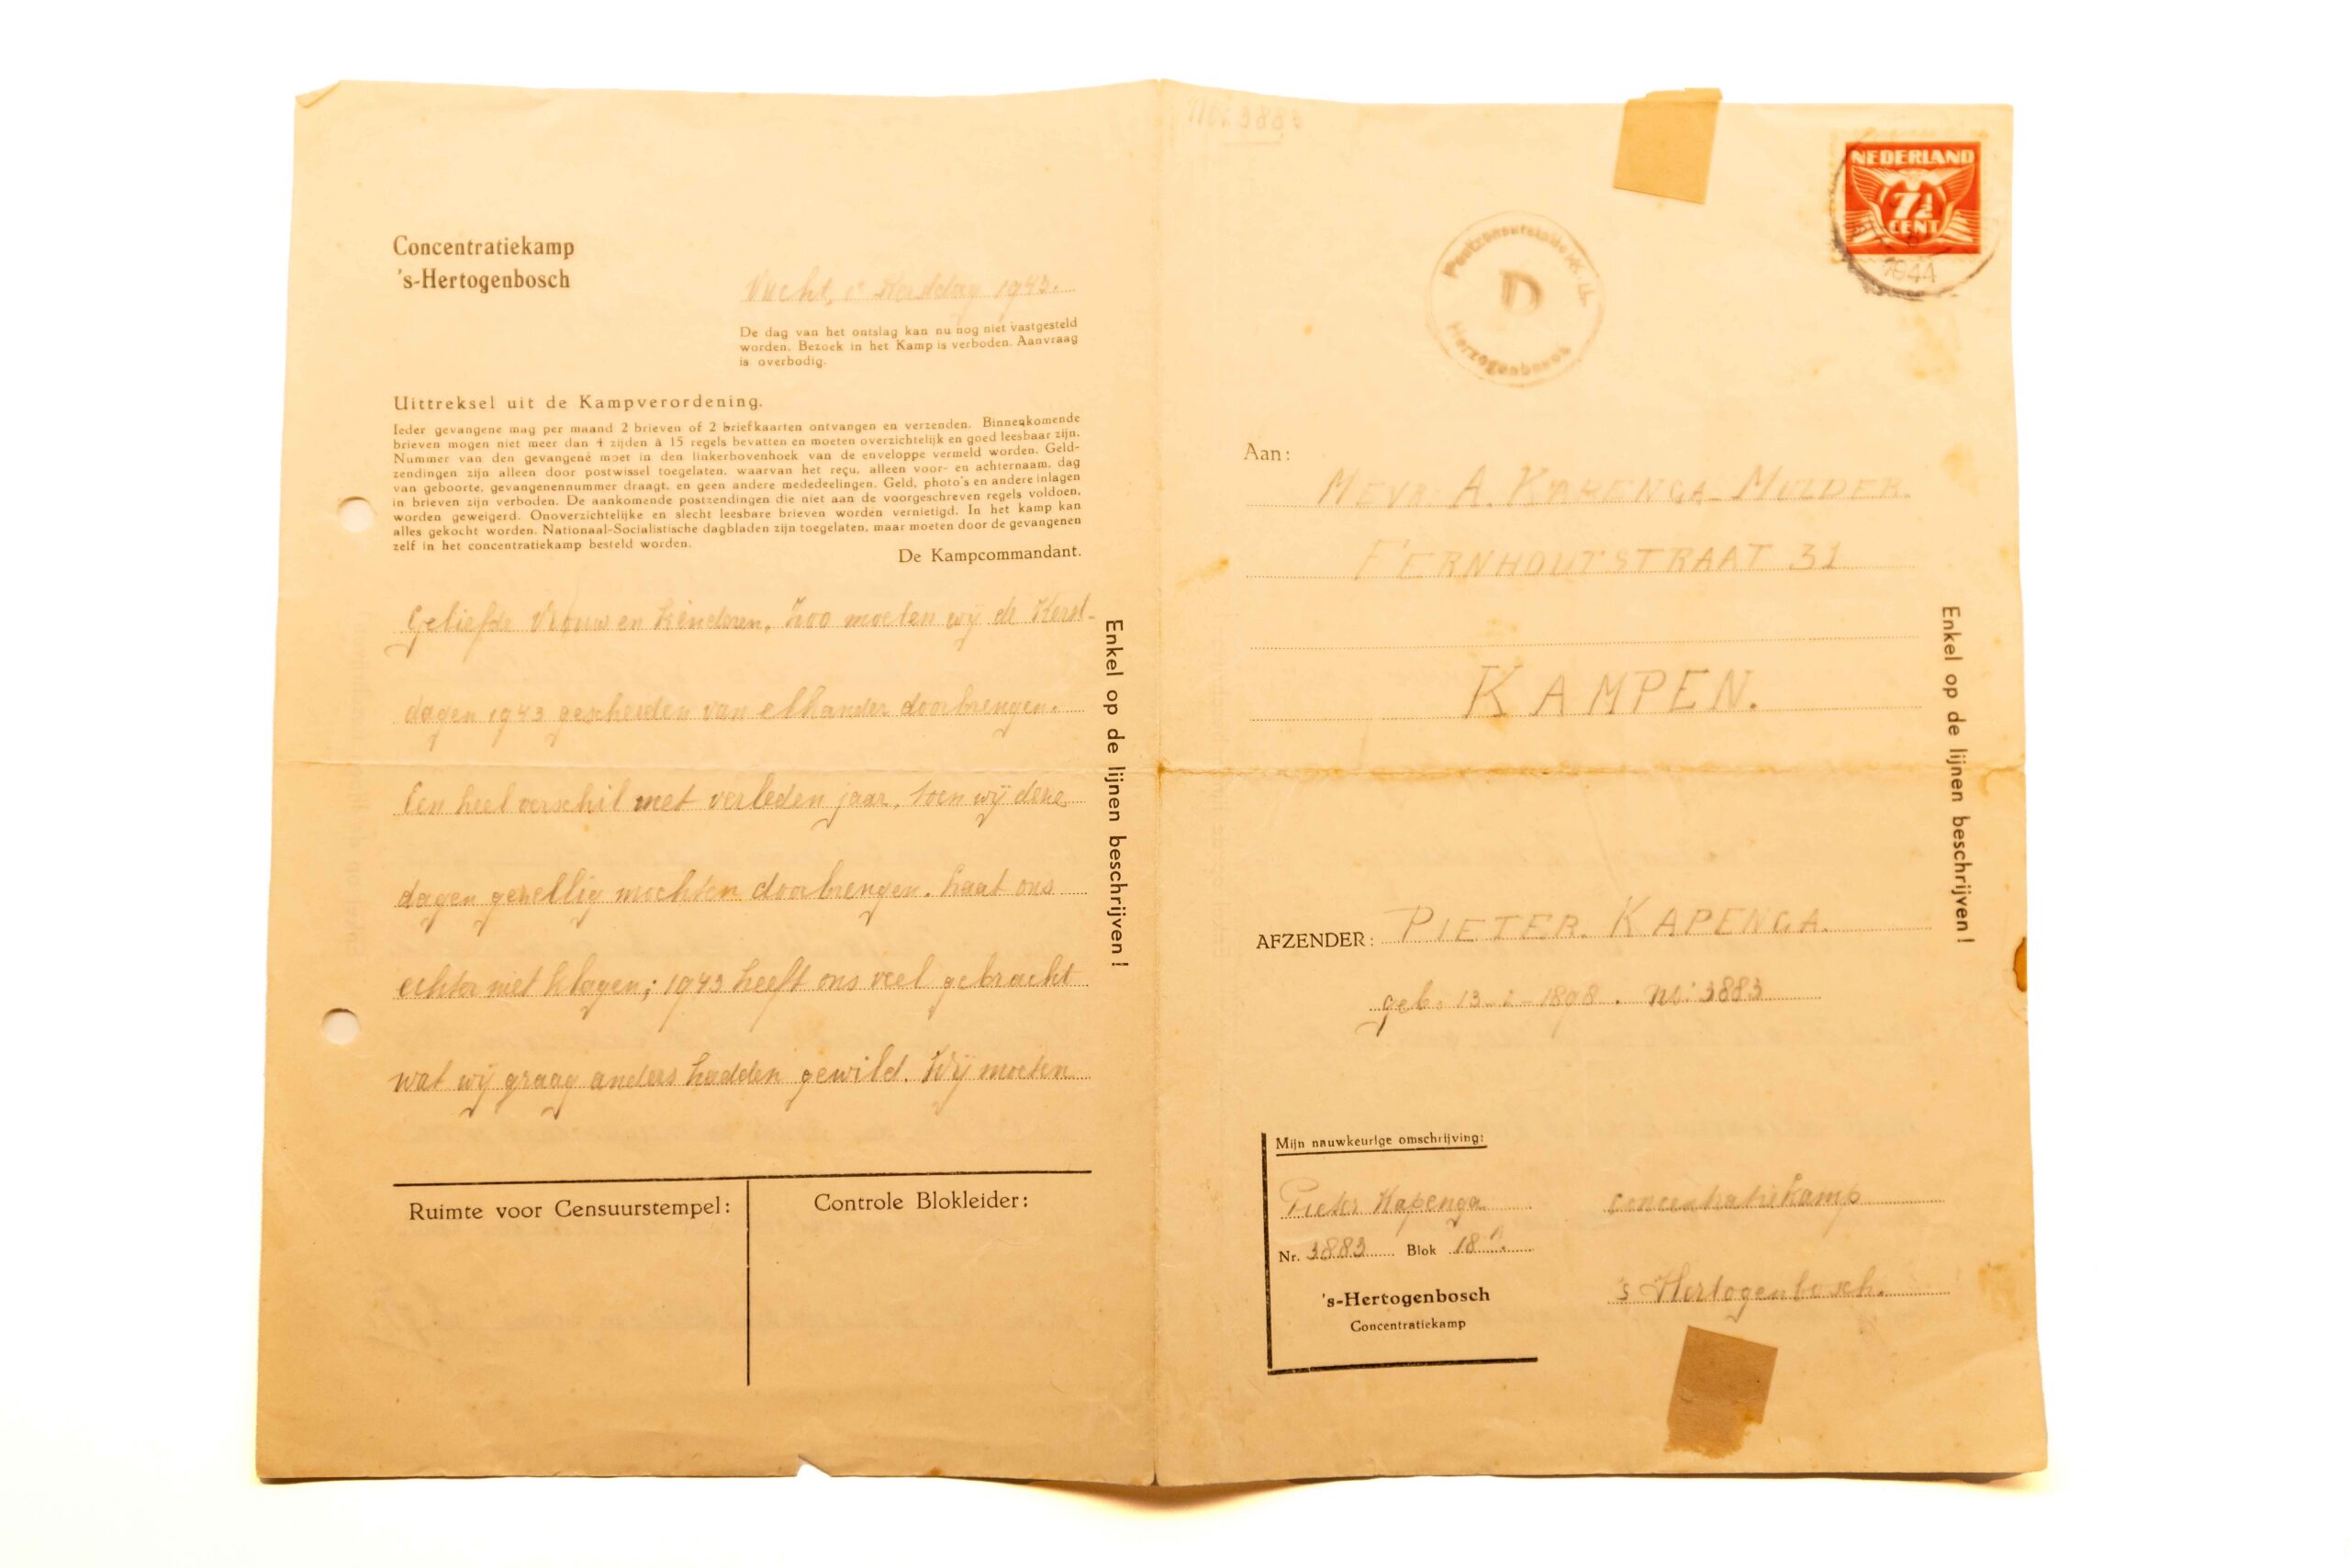 Concentratiekamp
's-Hertogenbosch
Vucht, 1e Kerstdag 1943.
De dag van het ontslag kan nu nog niet vastgesteld
worden. Bezoek in het Kamp is verboden. Aanvraag
is overbodig.
Uittreksel uit de Kampverordening.
Ieder gevangene mag per maand 2 brieven of 2 briefkaarten ontvangen en verzenden. Binnenkomende
brieven mogen niet meer dan 4 zijden à 15 regels bevatten en moeten overzichtelijk en goed leesbaar zijn.
Nummer van den gevangene moet in den linkerbovenhoek van de enveloppe vermeld worden. Geld-
zendingen zijn alleen door postwissel toegelaten, waarvan het reçu, alleen voor- en achternaam, dag
van geboorte, gevangenennummer draagt, en geen andere mededeelingen. Geld, photo's en andere inlagen
in brieven zijn verboden. De aankomende postzendingen die niet aan de voorgeschreven regels voldoen,
worden geweigerd. Onoverzichtelijke en slecht leesbare brieven worden vernietigd. In het kamp kan
alles gekocht worden. Nationaal-Socialistische dagbladen zijn toegelaten, maar moeten door de gevangenen
zelf in het concentratiekamp besteld worden.
De Kampcommandant.
Geliefde Vrouw en Kinderen. Zoo moeten wij de Kerst-
dagen 1943 gescheiden van elkander doorbrengen.
Een heel verschil met verleden jaar, toen wij deze
dagen gezellig mochten doorbrengen. Laat ons
echter niet klagen; 1943 heeft ons veel gebracht
wat wij graag anders hadden gewild. Wij moeten
Enkel op de lijnen beschrijven!
Ruimte voor Censuurstempel:
Controle Blokleider:
No: 3883
NEDERLAND
7½
CENT
1944
D
Herzogenbosch
Aan:
MEVR. A. KAPENGA-MULDER.
FERNHOUTSTRAAT 31
KAMPEN.
Enkel op de lijnen beschrijven!
AFZENDER: PIETER. KAPENGA.
geb. 13-2-1898. No: 3883
Mijn nauwkeurige omschrijving:
Pieter Kapenga
Nr. 3883 Blok 18A.
's-Hertogenbosch
Concentratiekamp
concentratiekamp
's Hertogenbosch.